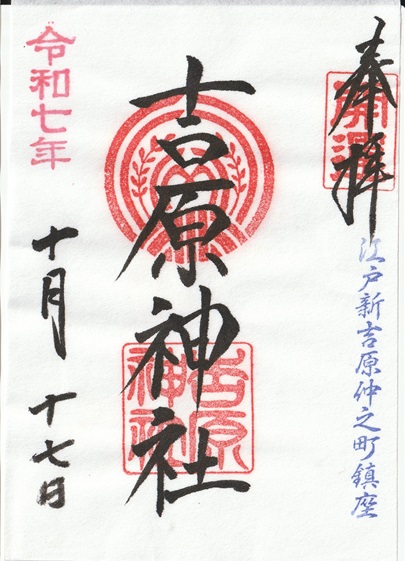 奉拝
開運
江戸新吉原仲之町鎮座
吉原神社
吉原神社
令和七年
十月十七日